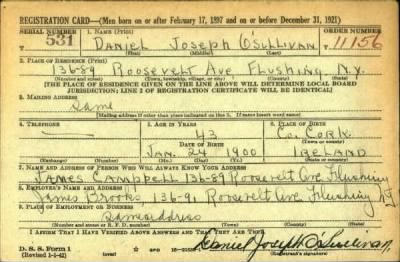 REGISTRATION CARD—(Men born on or after February 17, 1897 and on or before December 31, 1921)
SERIAL NUMBER 1. NAME (Print) ORDER NUMBER
531 DANIEL JOSEPH O'SULLIVAN 11156
2. PLACE OF RESIDENCE (Print)
136-89 Roosevelt Ave Flushing N.Y.
(Number and street) (Town, township, village, or city) (County) (State)
[THE PLACE OF RESIDENCE GIVEN ON THE LINE ABOVE WILL DETERMINE LOCAL BOARD
JURISDICTION; LINE 2 OF REGISTRATION CERTIFICATE WILL BE IDENTICAL]
3. MAILING ADDRESS
Same
[Mailing address if other than place indicated on line 2. If same insert word same]
4. TELEPHONE 5. AGE IN YEARS 6. PLACE OF BIRTH
— 43 Co. Cork
DATE OF BIRTH (Town or county)
JAN. 24 1900 IRELAND
(Exchange) (Number) (Mo.) (Day) (Yr.) (State or country)
7. NAME AND ADDRESS OF PERSON WHO WILL ALWAYS KNOW YOUR ADDRESS
JAMES CAMPBELL 136-89 Roosevelt Ave Flushing
8. EMPLOYER'S NAME AND ADDRESS
James Brooks 136-91 Roosevelt Ave Flushing NY
9. PLACE OF EMPLOYMENT OR BUSINESS
Same address
(Number and street or R. F. D. number) (Town) (County) (State)
I AFFIRM THAT I HAVE VERIFIED ABOVE ANSWERS AND THAT THEY ARE TRUE.
D. S. S. Form 1
(Revised 1-1-42) (over) Daniel Joseph O'Sullivan
(Registrant's signature)